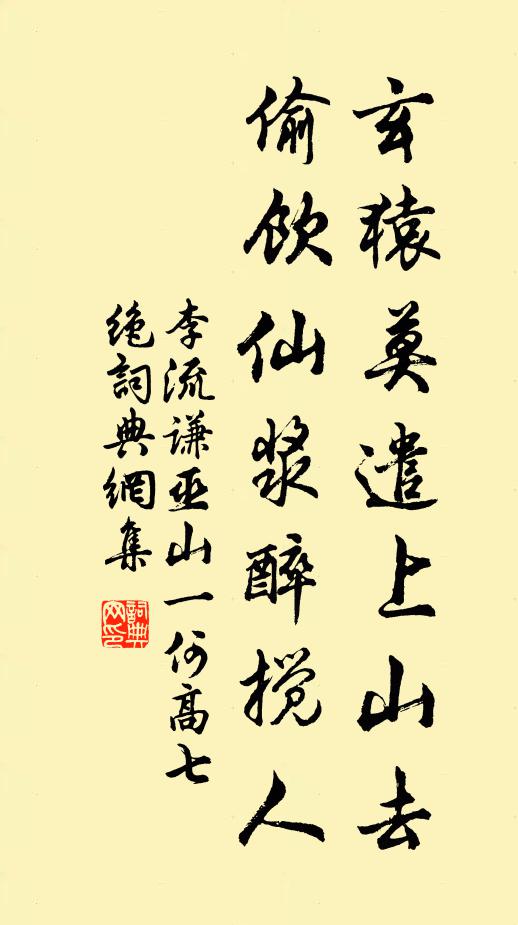 玄猿莫遣上山去
偷饮仙浆醉搅人
李流谦巫山一何高七
绝词典网集
词典网印